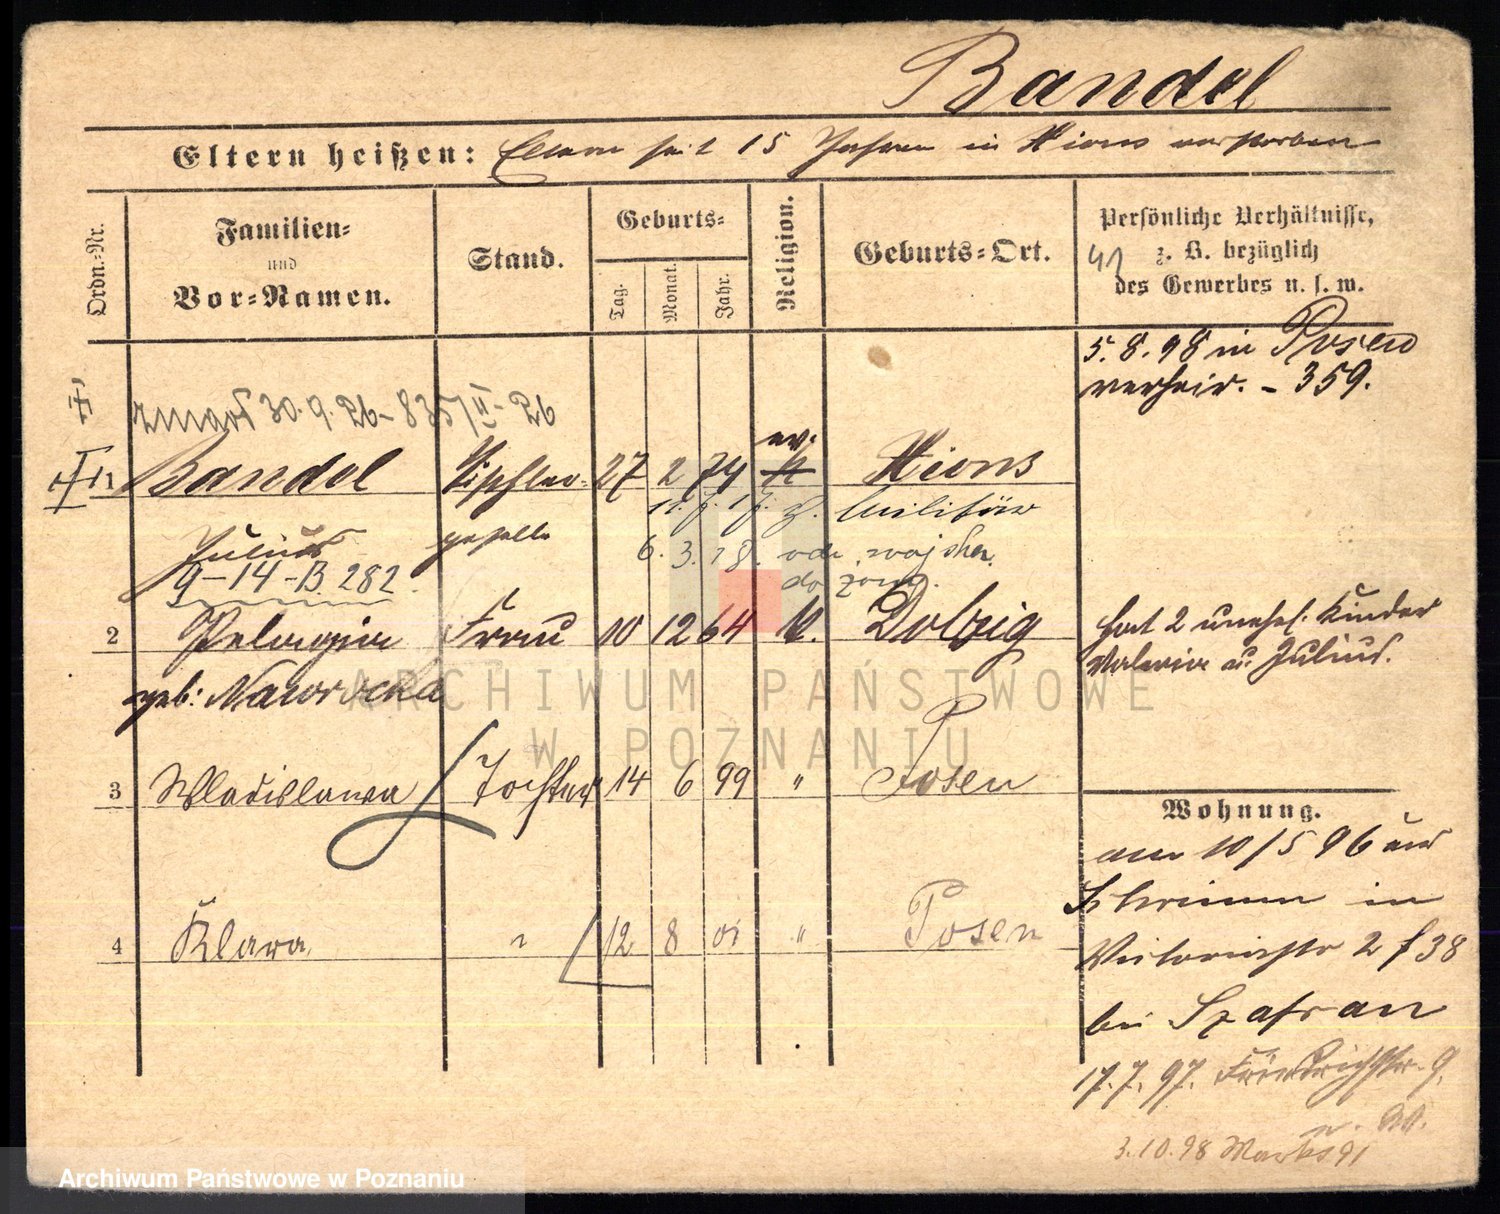 Bandel
Eltern heißen: Eltern seit 15 Jahren in Xions verstorben
Ordn.-Nr.
Familien-
und
Vor-Namen.
Stand.
Geburts-
Tag.
Monat.
Jahr.
Religion.
Geburts-Ort.
Persönliche Verhältnisse,
z. B. bezüglich
des Gewerbes u. s. w.
5. 8. 98 in Posen
verheir. - 359.
zmarł 30. 9. 26 - 835/II - 26
ev.
Bandel Tischler- 27 2 74 k Xions
Julius geselle
11. 7. 17. z. Militär
6. 3. 18. von
do żony.
9-14-B. 282
2 Pelagia Frau 10 12 64 k. Dolzig
geb: Nawrocka
hat 2 unehel. Kinder
Valeria u. Julius.
3 Wladislawa Tochter 14 6 99 " Posen
4 Klara " 12 8 01 " Posen
Wohnung.
am 10/5 96 aus
Schrimm in
Victoriastr 2 f 38
bei Szafran
17. 7. 97. Friedrichstr. 9.
n. W.
3. 10. 98 Markt 91
ARCHIWUM PAŃSTWOWE
W POZNANIU
Archiwum Państwowe w Poznaniu